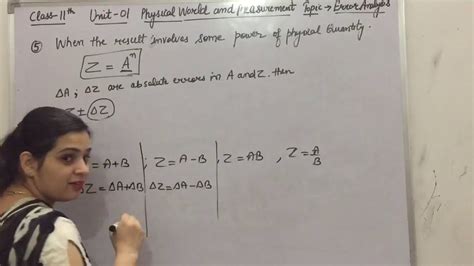 Class-11th Unit-01 Physical World and measurement Topic → Error Analysis
⑤ When the result involves some power of physical Quantity.
Z = Aⁿ
ΔA ; ΔZ are absolute errors in A and Z. then
Z ± ΔZ
= A+B ; Z = A-B , Z = AB , Z = A/B
ΔZ = ΔA+ΔB ΔZ = ΔA-ΔB